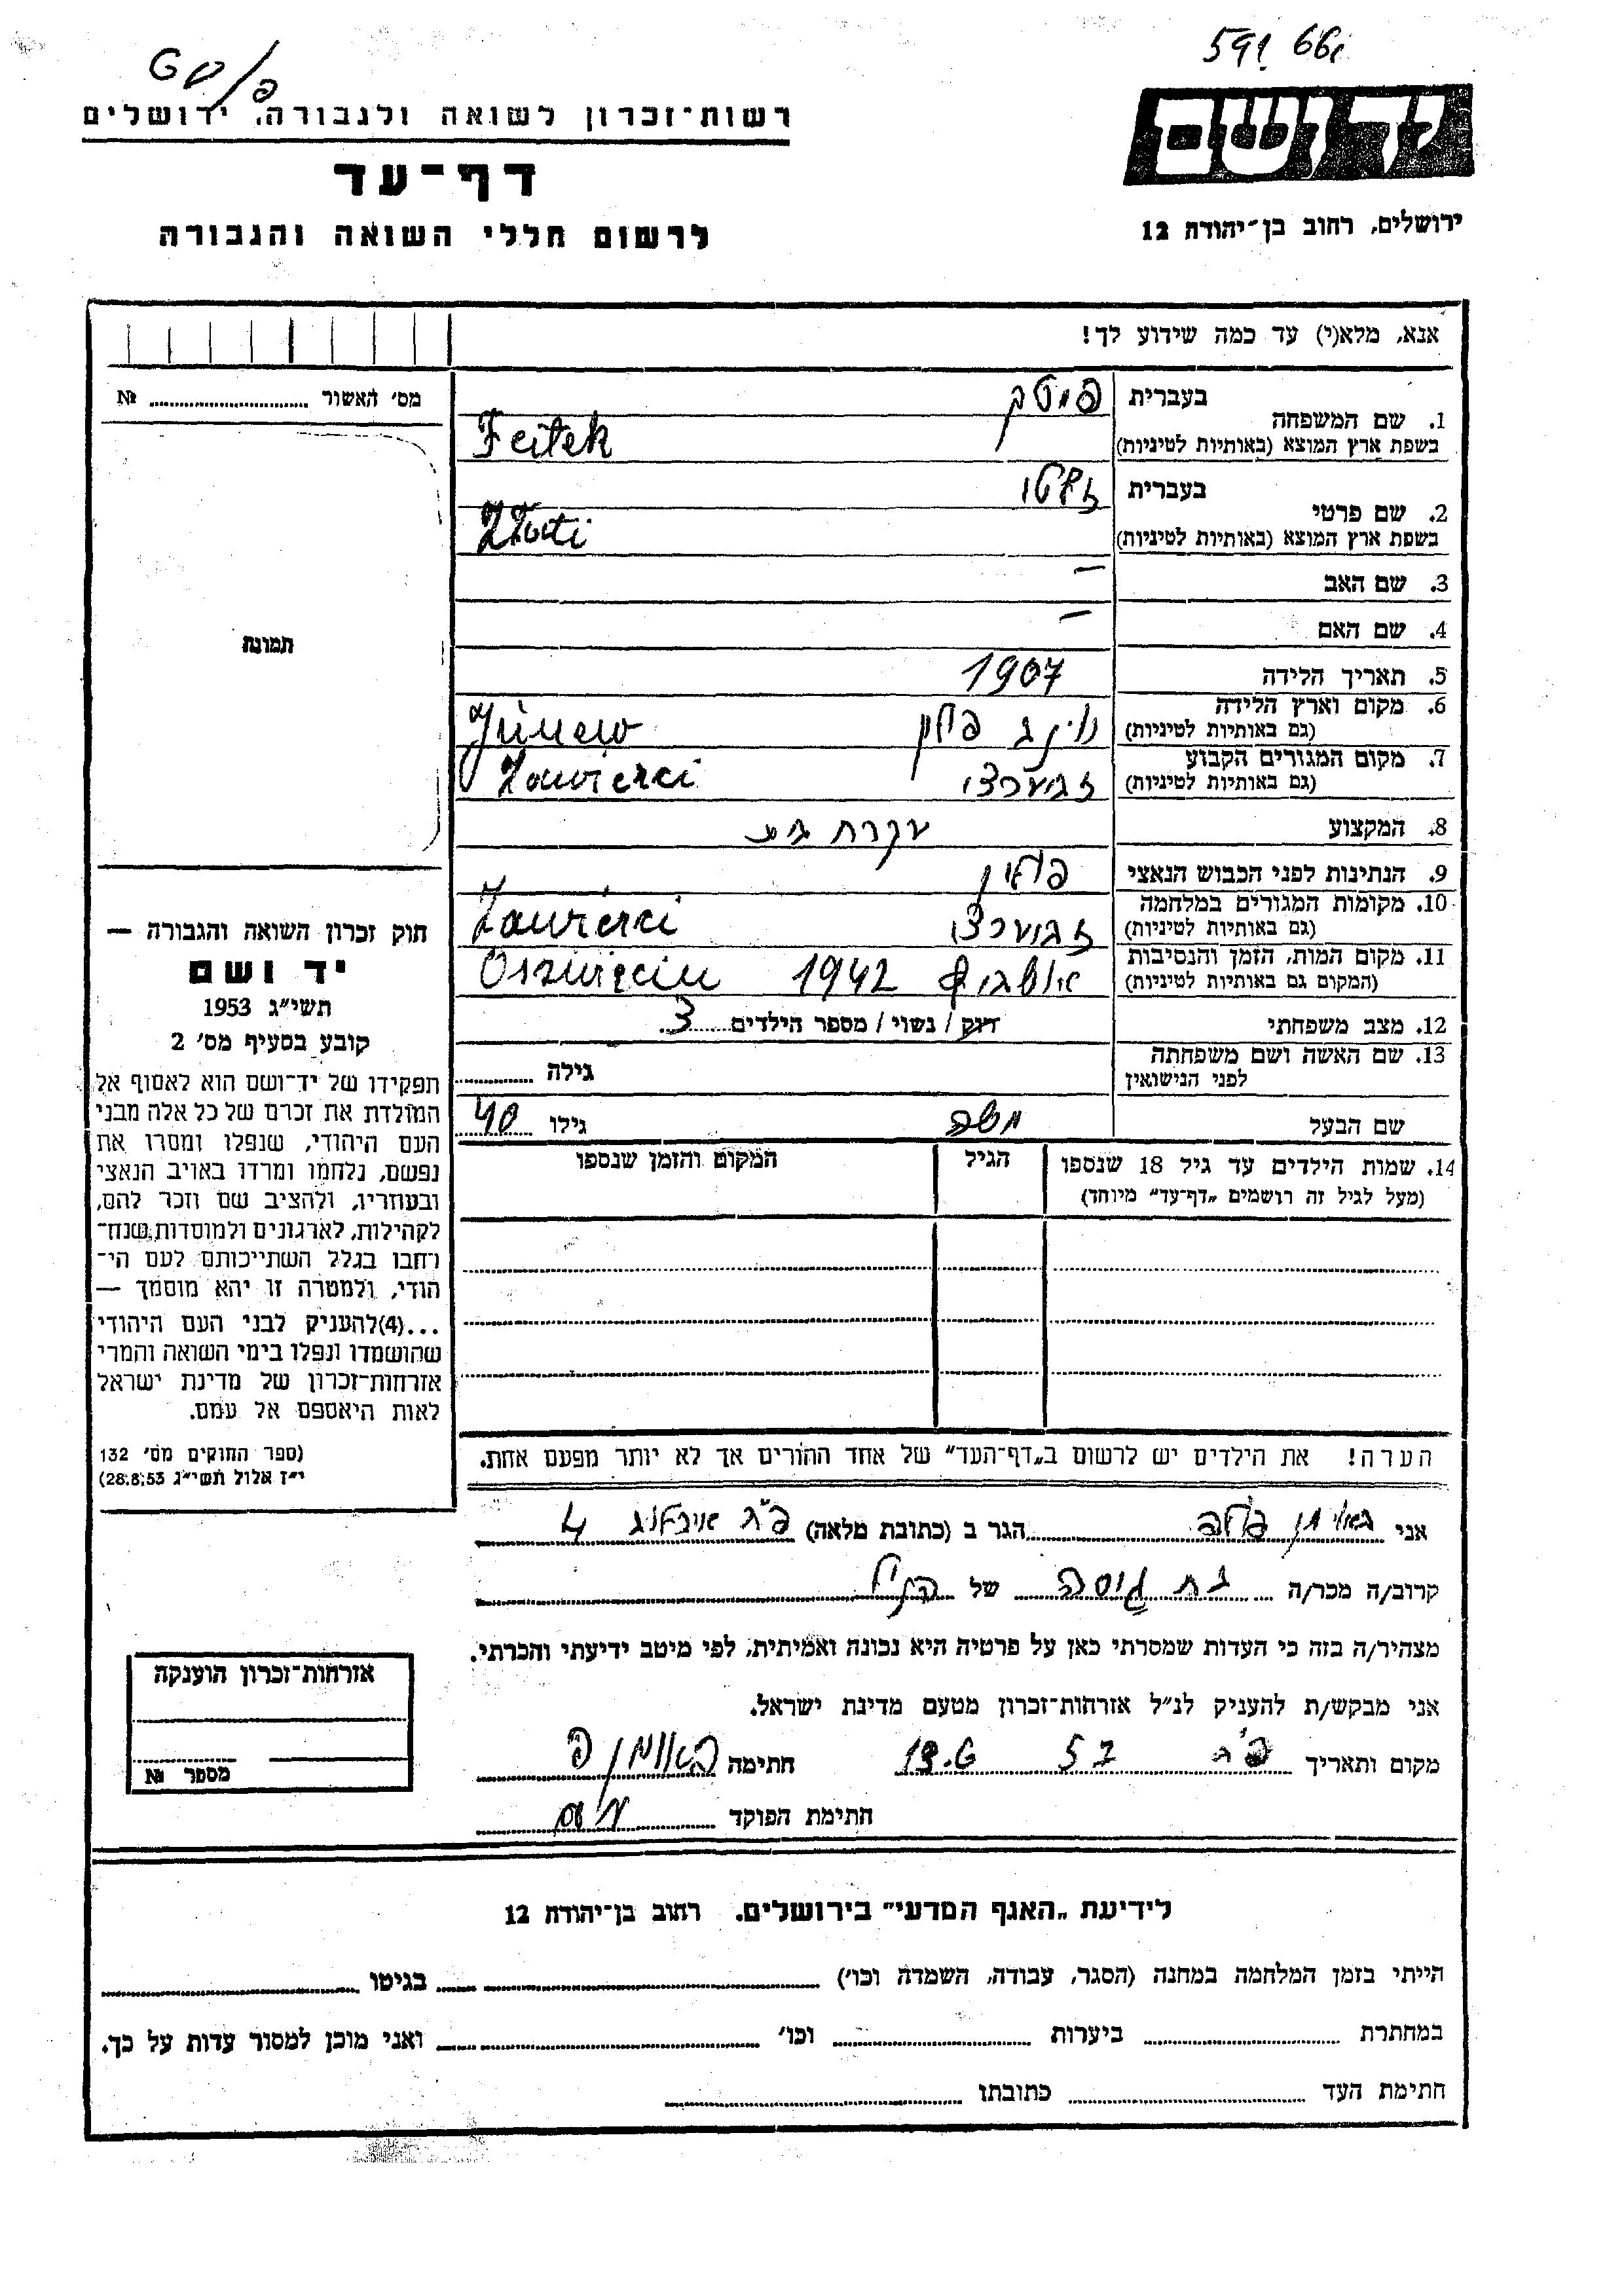 591 66
יד ושם
ירושלים, רחוב בן־יהודה 12
רשות־זכרון לשואה ולגבורה, ירושלים
דף־עד
לרשום חללי השואה והגבורה
אנא, מלא(י) עד כמה שידוע לך!
מס' האשור № 
תמונה
1. שם המשפחה
בעברית פייטק
בשפת ארץ המוצא (באותיות לטיניות) Fejtek
2. שם פרטי
בעברית זלטי
בשפת ארץ המוצא (באותיות לטיניות) Złoti
3. שם האב –
4. שם האם –
5. תאריך הלידה 1907
6. מקום וארץ הלידה
(גם באותיות לטיניות) פולין
7. מקום המגורים הקבוע
(גם באותיות לטיניות) זביערצי Zawierci
8. המקצוע עקרת בית
9. הנתינות לפני הכבוש הנאצי פולין
10. מקומות המגורים במלחמה
(גם באותיות לטיניות) זביערצי Zawierci
11. מקום המות, הזמן והנסיבות
(המקום גם באותיות לטיניות) 1942 Oszwięcim
12. מצב משפחתי רווק / נשוי / מספר הילדים 3
13. שם האשה ושם משפחתה
לפני הנישואין גילה
שם הבעל משה גילו 40
14. שמות הילדים עד גיל 18 שנספו
(מעל לגיל זה רושמים „דף־עד" מיוחד)
הגיל
המקום והזמן שנספו
הערה! את הילדים יש לרשום ב„דף־העד" של אחד ההורים אך לא יותר מפעם אחת.
חוק זכרון השואה והגבורה —
יד ושם
תשי"ג 1953
קובע בסעיף מס' 2
תפקידו של יד־ושם הוא לאסוף אל
המולדת את זכרם של כל אלה מבני
העם היהודי, שנפלו ומסרו את
נפשם, נלחמו ומרדו באויב הנאצי
ובעוזריו, ולהציב שם וזכר להם,
לקהילות, לארגונים ולמוסדות שנח־
רחבו בגלל השתייכותם לעם הי־
הודי, ולמטרה זו יהא מוסמך —
...(4)להעניק לבני העם היהודי
שהושמדו ונפלו בימי השואה והמרי
אזרחות־זכרון של מדינת ישראל
לאות היאספם אל עמם.
(ספר החוקים מס' 132
י"ז אלול תשי"ג 28.8.53)
אני הגר ב (כתובת מלאה) ר"ג 4
קרוב/ה מכר/ה בת גיסה של הנ"ל
מצהיר/ה בזה כי העדות שמסרתי כאן על פרטיה היא נכונה ואמיתית, לפי מיטב ידיעתי והכרתי.
אני מבקש/ת להעניק לנ"ל אזרחות־זכרון מטעם מדינת ישראל.
מקום ותאריך ר"ג 57 19.6 חתימה
חתימת הפוקד
אזרחות־זכרון הוענקה
מספר №
לידיעת „האגף המדעי" בירושלים. רחוב בן־יהודה 12
הייתי בזמן המלחמה במחנה (הסגר, עבודה, השמדה וכו') בגיטו
במחתרת ביערות וכו' ואני מוכן למסור עדות על כך.
חתימת העד כתובתו